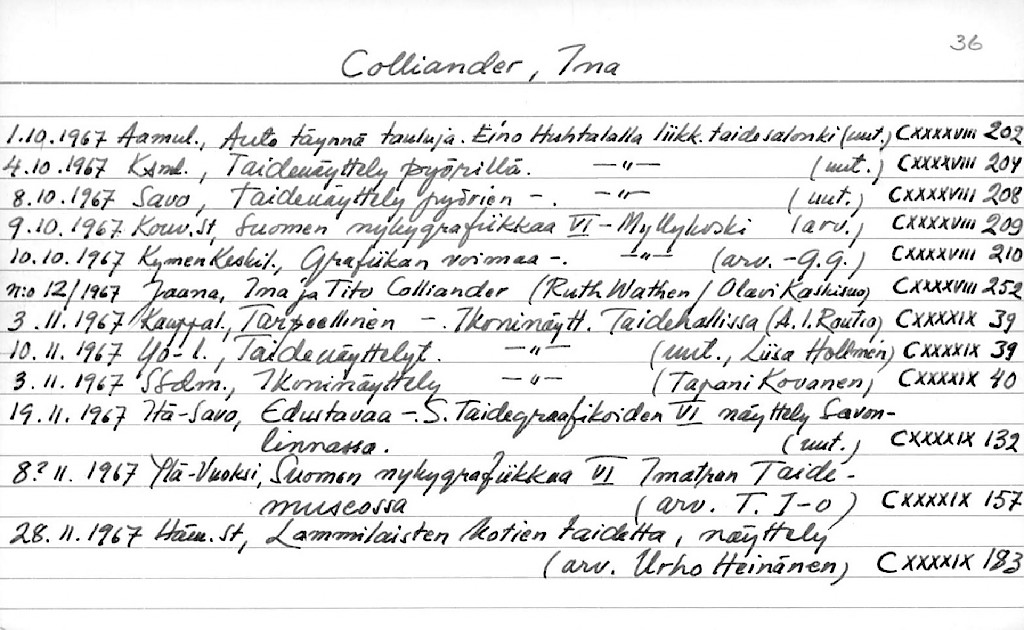 36
Colliander, Ina
1.10.1967 Aamul., Auto täynnä tauluja. Eino Huhtalalla liikk. taidesalonki (uut.) CXXXXVIII 202
4.10.1967 KSml., Taidenäyttely pyörillä. —"— (uut.) CXXXXVIII 204
8.10.1967 Savo, Taidenäyttely pyörien –. —"— (uut.) CXXXXVIII 208
9.10.1967 Kouv.St, Suomen nykygrafiikkaa VI – Myllykoski (arv.) CXXXXVIII 209
10.10.1967 KymenKeskil., Grafiikan voimaa –. —"— (arv. –g.g.) CXXXXVIII 210
n:o 12/1967 Jaana, Ina ja Tito Colliander (Ruth Wathen / Olavi Kaskisuo) CXXXXVIII 252
3.11.1967 Kauppal., Tarpeellinen –. Ikoninäytt. Taidehallissa (A.I.Routio) CXXXXIX 39
10.11.1967 Yo-l., Taidenäyttelyt. —"— (uut., Liisa Hollmén) CXXXXIX 39
3.11.1967 SSdm., Ikoninäyttely —"— (Tapani Kovanen) CXXXXIX 40
19.11.1967 Itä-Savo, Edustavaa –. S.Taidegraafikoiden VI näyttely Savon-
linnassa. (uut.) CXXXXIX 132
8?.11.1967 Ylä-Vuoksi, Suomen nykygrafiikkaa VI Imatran Taide-
museossa (arv. T. I-o) CXXXXIX 157
28.11.1967 Häm.St, Lammilaisten kotien taidetta, näyttely
(arv. Urho Heinänen) CXXXXIX 183